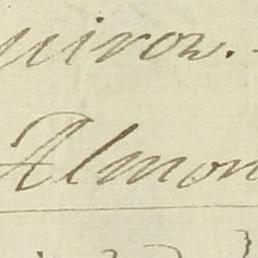 uiroz.
Almon